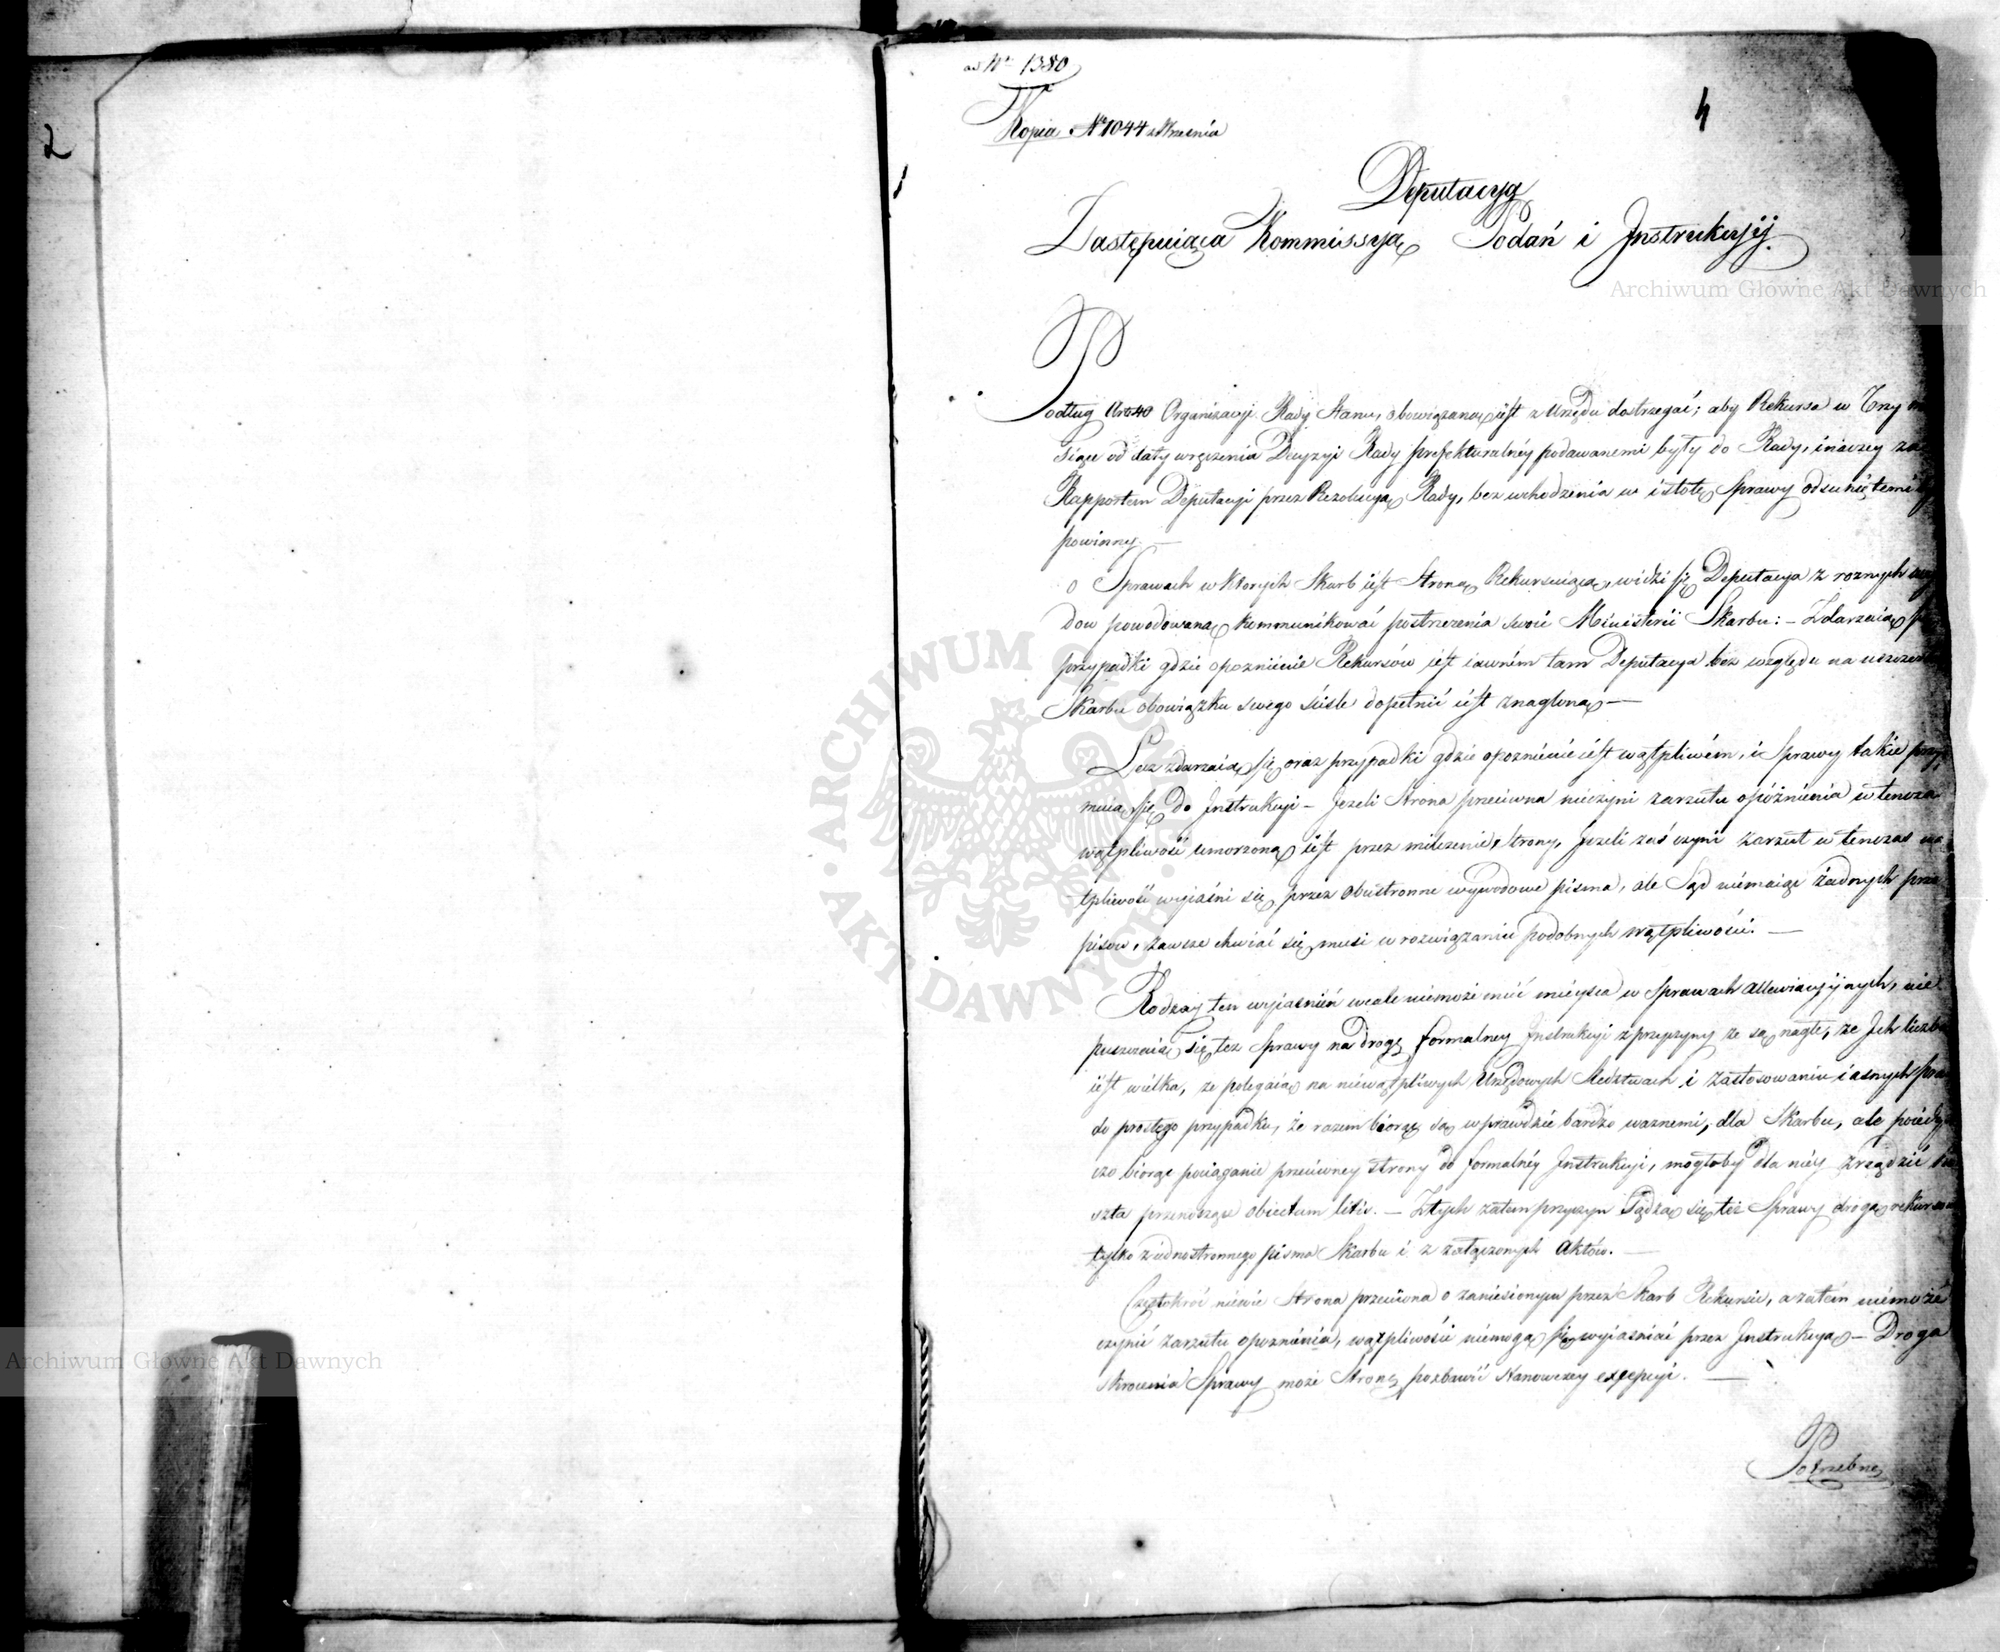 2
ad Nr 1380
Kopia Nr 1044 z Września
4
Deputacya
Zastępuiąca Kommissyą Podań i Instrukcyj.
Podług Art 40 Organizacyi Rady Stanu, obowiązaną iest z Urzędu dostrzegać; aby Rekursa w Trzy
siące od daty wręczenia Decyzyi Rady prefekturalnéy podawanemi były do Rady, inaczey za
Rapportem Deputacyi przez Rezolucyą Rady, bez wchodzenia w istotę Sprawy odsuniętemi
powinny. —
o Sprawach w których Skarb iest Stroną Rekursuiącą, widzi się Deputacya z roznych
dow powodowaną kommunikować postrzeżenia swoie Ministerii Skarbu: – Zdarzaią
przypadki gdzie opoznienie Rekursów iest iawném tam Deputacya bez względu na
Skarbu obowiązku swego ściśle dopełnić iest znagloną —
Lecz zdarzaią się oraz przypadki gdzie opoznienie iest wątpliwém, i Sprawy takie przy
muią się do Instrukcyi – Jeżeli Strona przeciwna nieczyni zarzutu opóźnienia w tencza
wątpliwość umorzoną iest przez milczenie Strony, Jeżeli zaś czyni zarzut w tenczas wą
tpliwość wyiaśni się przez obustronne wywodowe pisma, ale Sąd niemaiąc żadnych prze
pisów, zawsze chwiać się musi w rozwiązaniu podobnych wątpliwości. —
Rodzay ten wyiaśnień wcale niemoże mieć mieysca w Sprawach allewiacyjnych, nie
puszczaią się też Sprawy na drogę formalney Instrukcyi z przyczyny że są nagłe, że Jch liczba
iest wielka, że polegaią na niewątpliwych Urzędowych śledztwach i zastosowaniu iasnych praw
do prostego przypadku, że razem biorąc są wprawdzie bardzo waznemi, dla Skarbu, ale poiedyn
czo biorąc pociąganie przeciwney Strony do formalnéy Instrukcyi, mogłoby dla niéy zrządzić ko
szta przenoszące obiectum litis. — Ztych zatem przyczyn Sądzą się też Sprawy drogą rekursu
tylko z iednostronnego pisma Skarbu i z załączonych aktów. —
Częstokroć niewie Strona przeciwna o zaniesionym przez Skarb Rekursie, a zatém niemoże
czynić zarzutu opoznienia, wątpliwości niemogą się wyiaśniać przez Instrukcyą – Droga
skrócenia Sprawy może Stronę pozbawić stanowczey excepcyi. —
Potrzebne
Archiwum Główne Akt Dawnych
Archiwum Główne Akt Dawnych